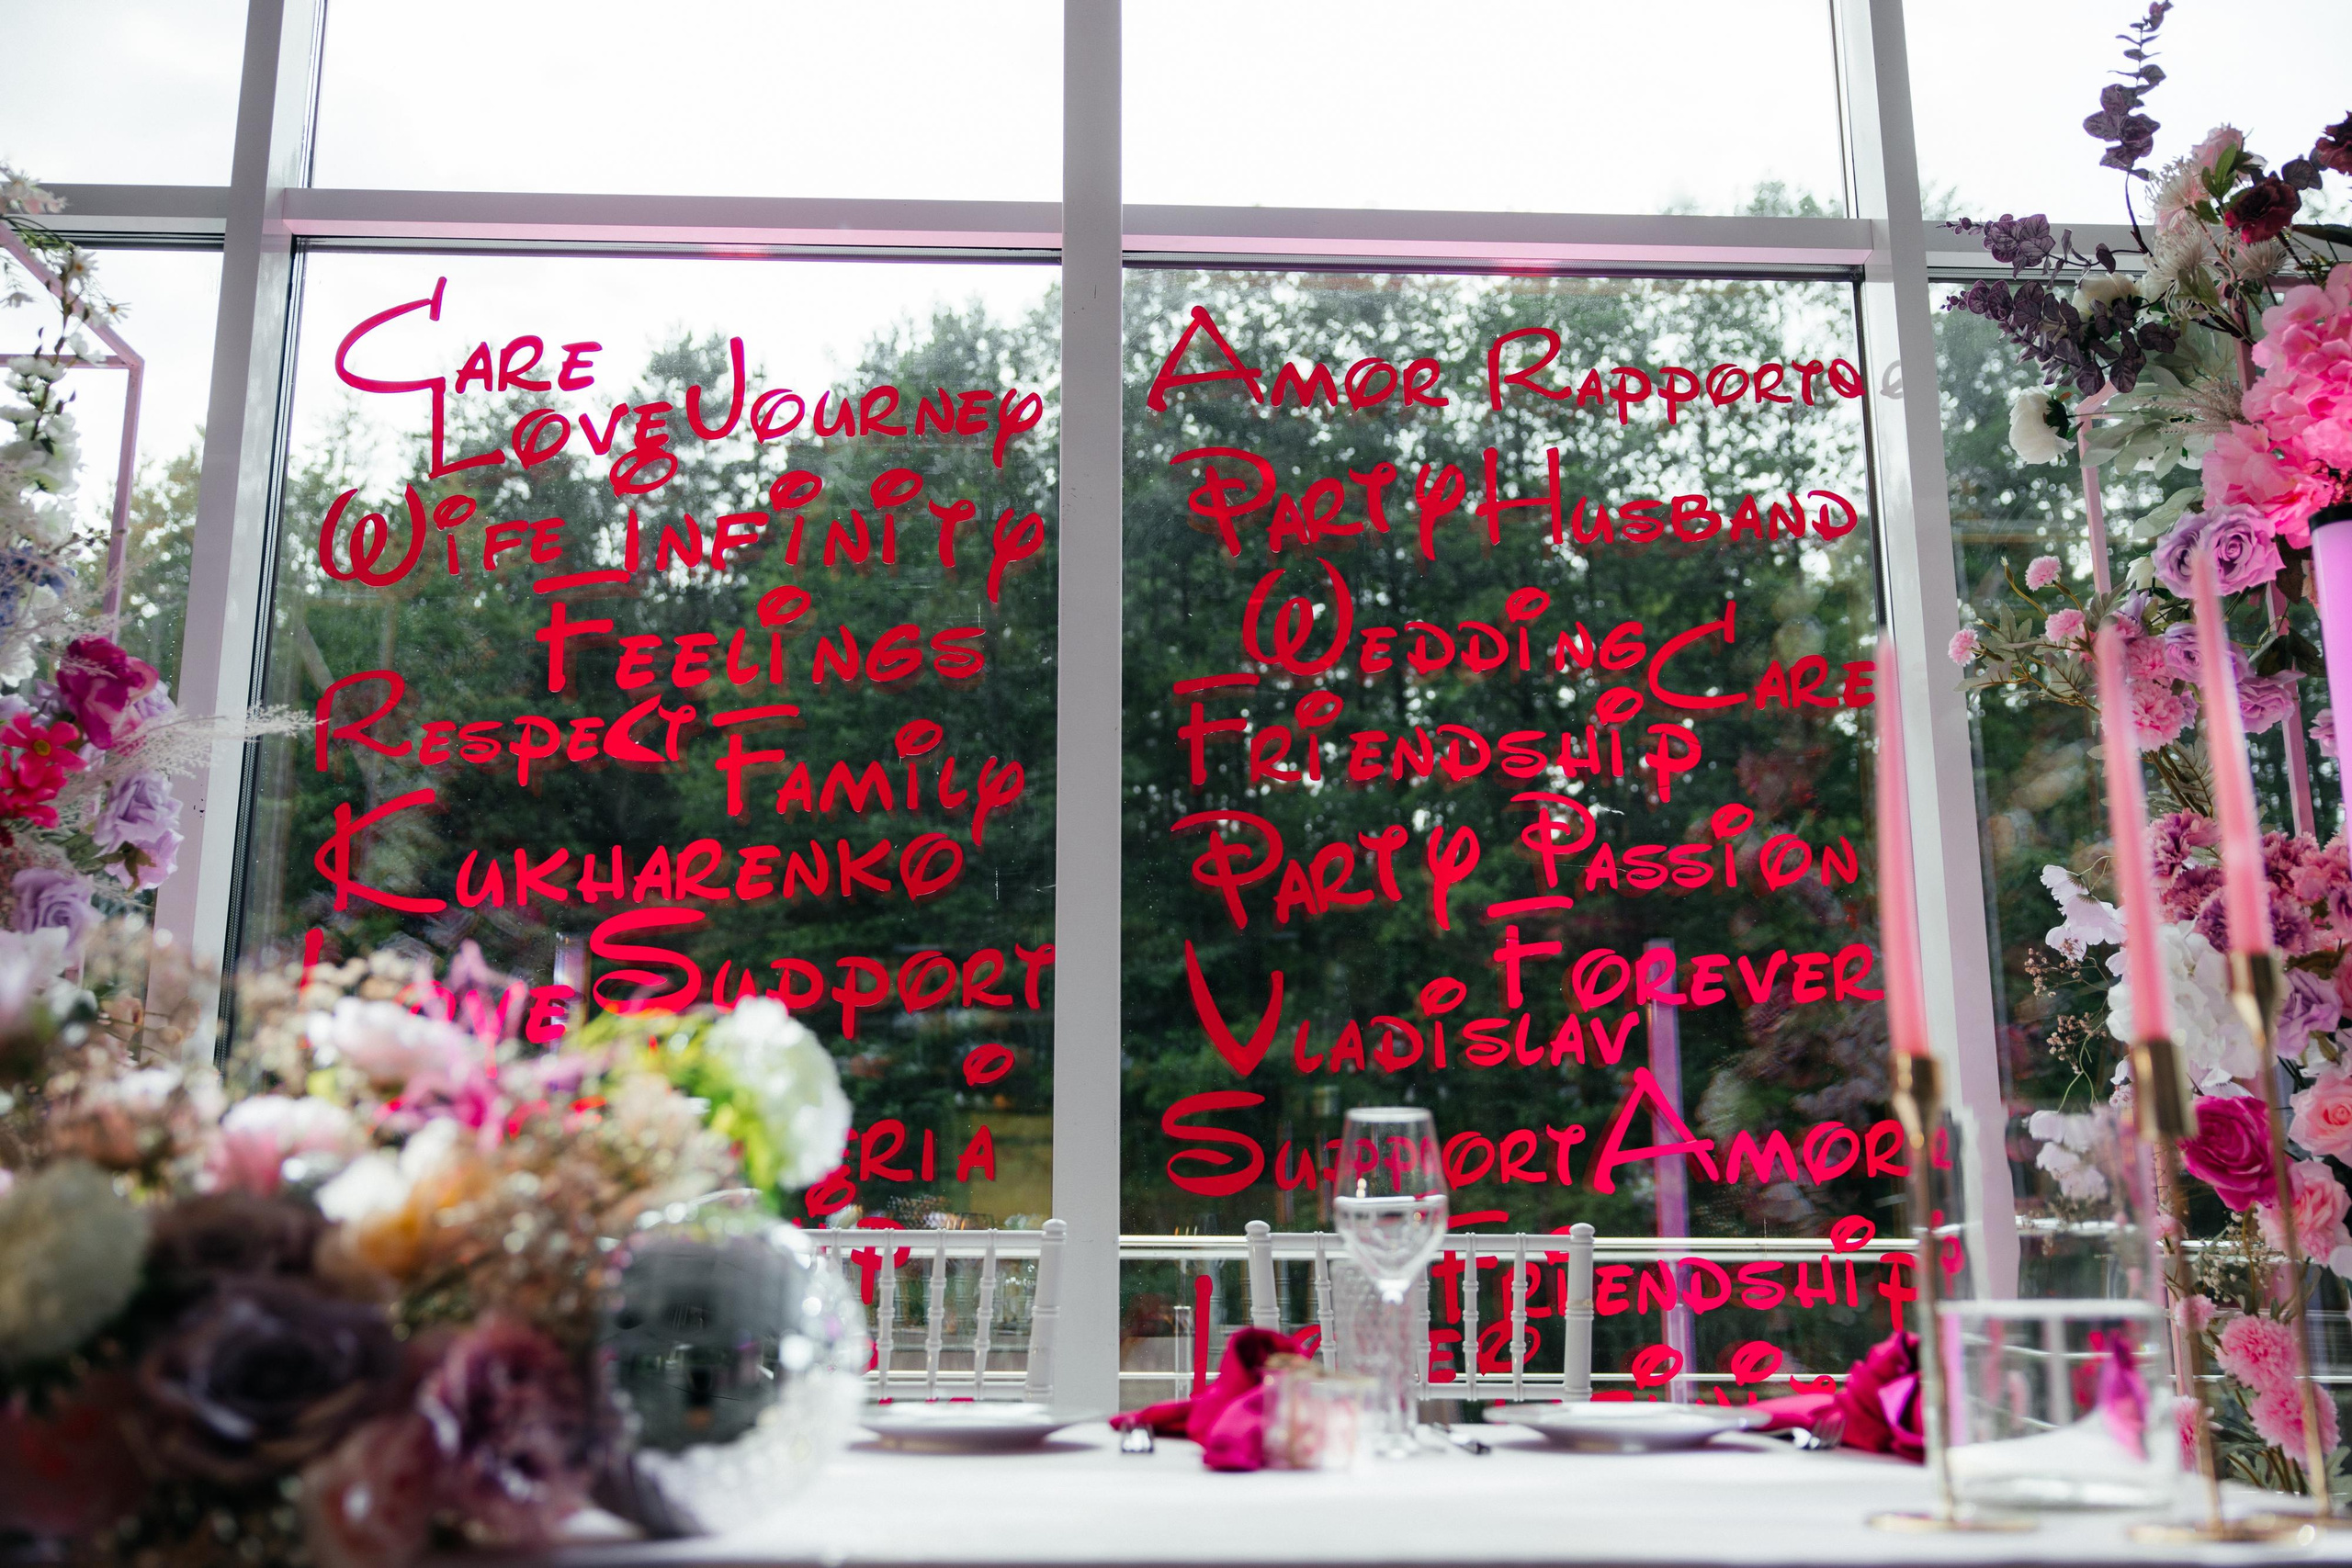 Care
Love Journey
Wife Infinity
Feelings
Respect Family
Kukharenko
Love Support
Amor Rapport
Party Husband
Wedding Care
Friendship
Party Passion
Forever
Vladislav
Support Amor
Friendship